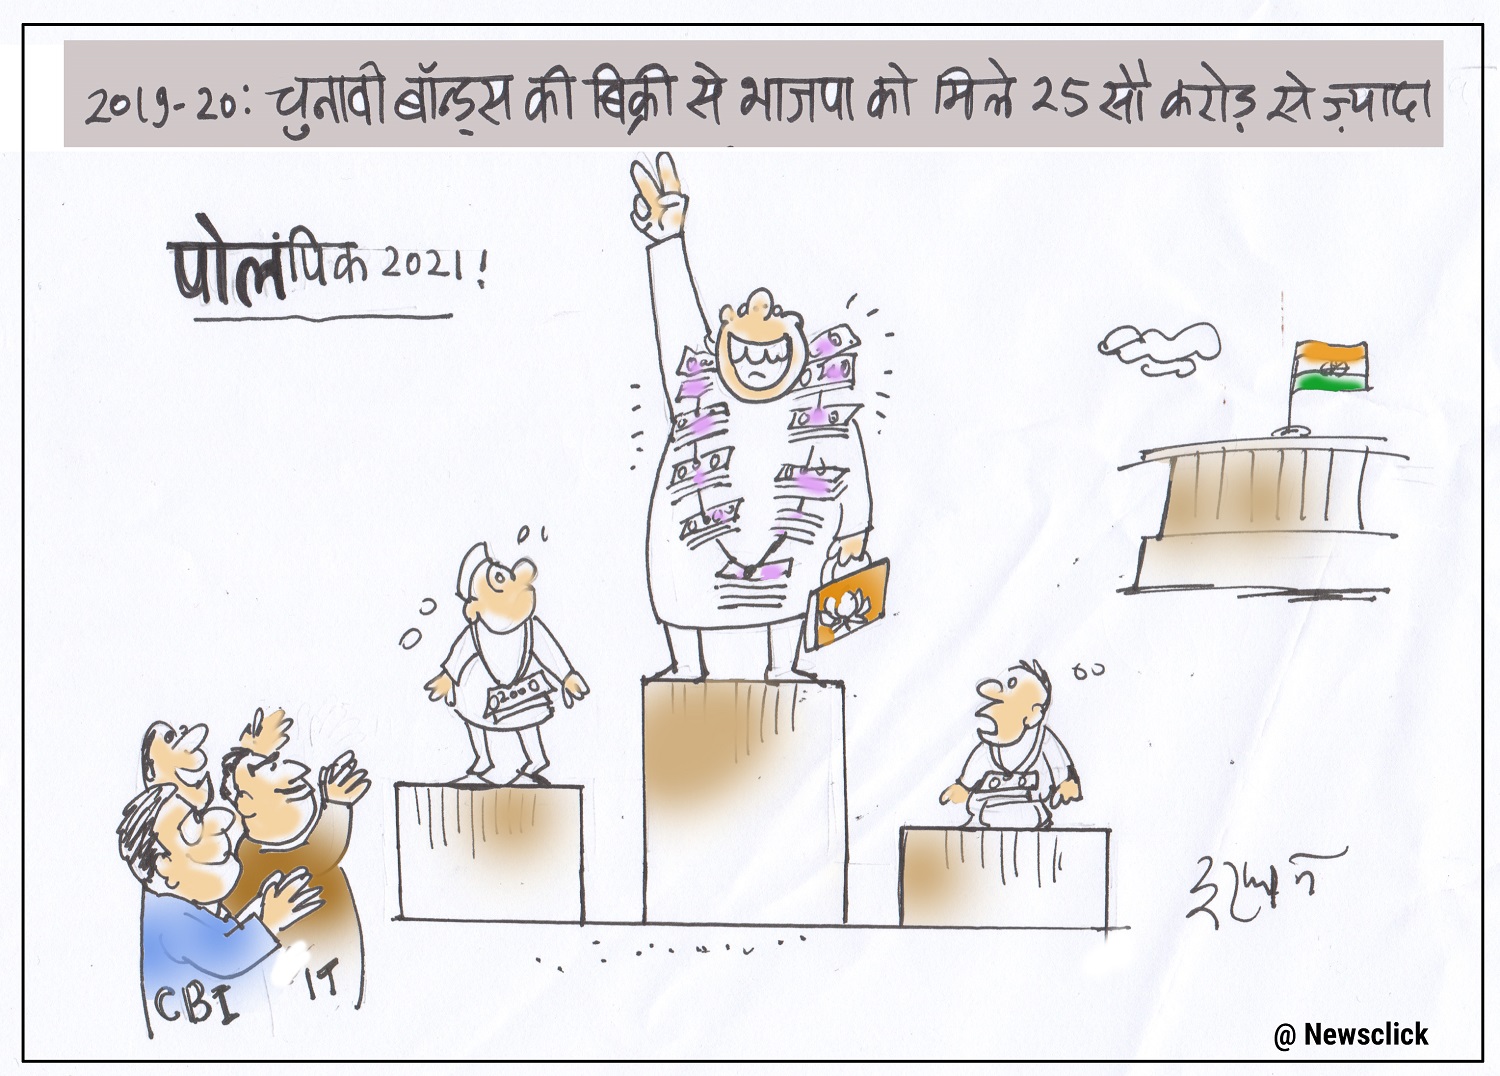 2019-20: चुनावी बॉन्ड्स की बिक्री से भाजपा को मिले 25 सौ करोड़ से ज़्यादा
पोलंपिक 2021!
2000
CBI
IT
इरफ़ान
@ Newsclick